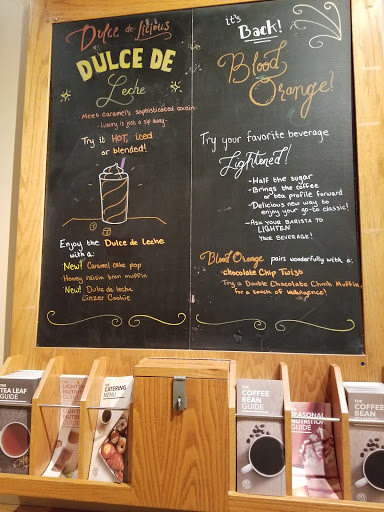 Dulce de-licious
DULCE DE
Leche
Meet caramel's sophisticated cousin
-luxury is just a sip away-
Try it HOT, iced
or blended!
Enjoy the Dulce de Leche
with a:
New! Caramel cake pop
-Honey raisin bran muffin
New! Dulce de leche
Linzer Cookie
it's
Back!
Blood
Orange!
Try your favorite beverage
Lightened!
-Half the sugar
-Brings the coffee
or tea profile forward
-Delicious new way to
enjoy your go-to classic!
-Ask your barista to
LIGHTEN
your beverage!
Blood Orange pairs wonderfully with a:
-chocolate Chip Twist
Try a Double Chocolate Chunk Muffin
for a touch of indulgence!
THE
TEA LEAF
GUIDE
NUTRITION
GUIDE
THE
CATERING
MENU
THE
COFFEE
BEAN
GUIDE
SEASONAL
NUTRITION
GUIDE
THE
COFFEE
BEAN
GUIDE